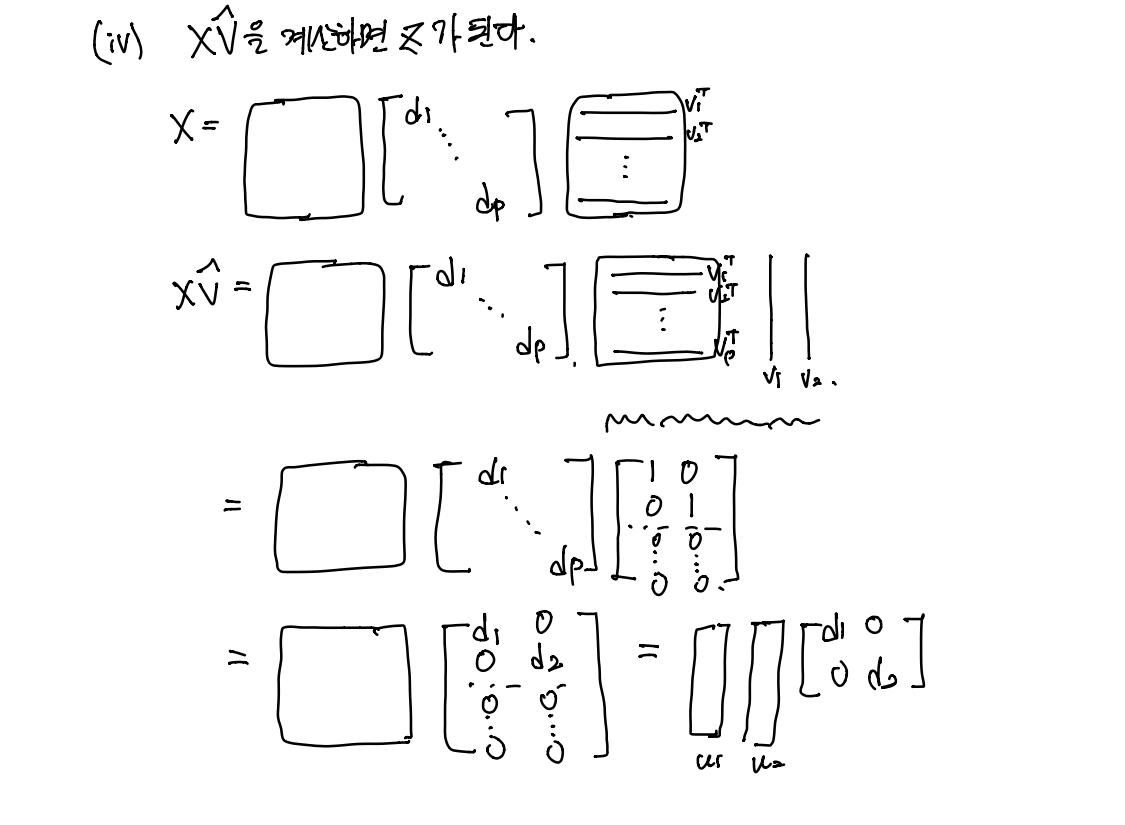 (iv) XV̂을 계산하면 Z가 된다.
X = [d₁ ⋱ dₚ] v₁ᵀ v₂ᵀ ⋮
XV̂ = [d₁ ⋱ dₚ] v₁ᵀ v₂ᵀ ⋮ vₚᵀ v₁ v₂.
= [d₁ ⋱ dₚ] [1 0
0 1
0 0
⋮ ⋮
0 0]
= [d₁ 0
0 d₂
0 0
⋮ ⋮
0 0] = u₁ u₂ [d₁ 0
0 d₂]